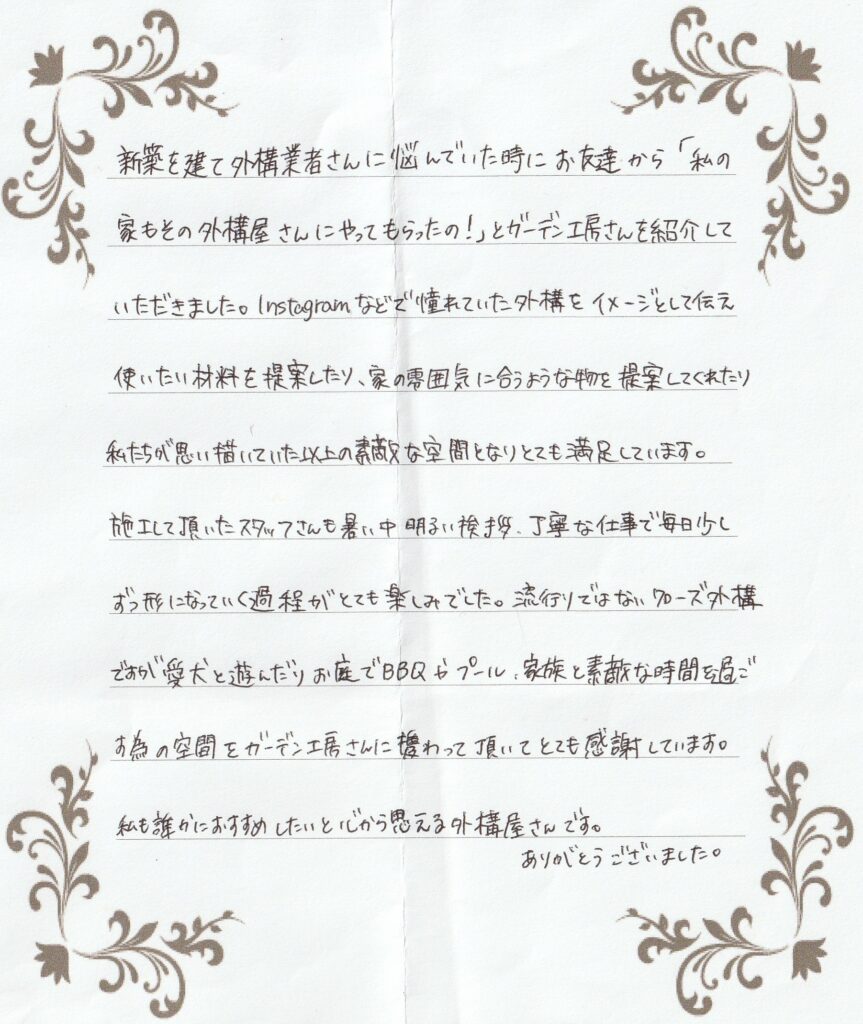 新築を建て外構業者さんに悩んでいた時にお友達から「私の
家もその外構屋さんにやってもらったの！」とガーデン工房さんを紹介して
いただきました。Instagramなどで憧れていた外構をイメージとして伝え
使いたい材料を提案したり、家の雰囲気に合うような物を提案してくれたり
私たちが思い描いていた以上の素敵な空間となりとても満足しています。
施工して頂いたスタッフさんも暑い中明るい挨拶、丁寧な仕事で毎日少し
ずつ形になっていく過程がとても楽しみでした。流行りではないクローズ外構
ですが愛犬と遊んだりお庭でBBQやプール、家族と素敵な時間を過ご
す為の空間をガーデン工房さんに携わって頂いてとても感謝しています。
私も誰かにおすすめしたいと心から思える外構屋さんです。
ありがとうございました。